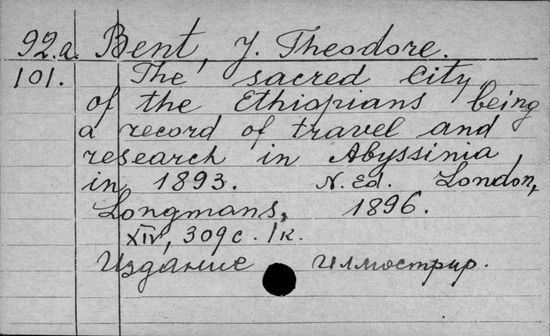 92.a. Bent, J. Theodore.
101. The sacred City
of the Ethiopians being
a record of travel and
research in Abyssinia
in 1893. N. Ed. London,
Longmans, 1896.
XIV, 309 с. 1 к.
Издание иллюстрир.